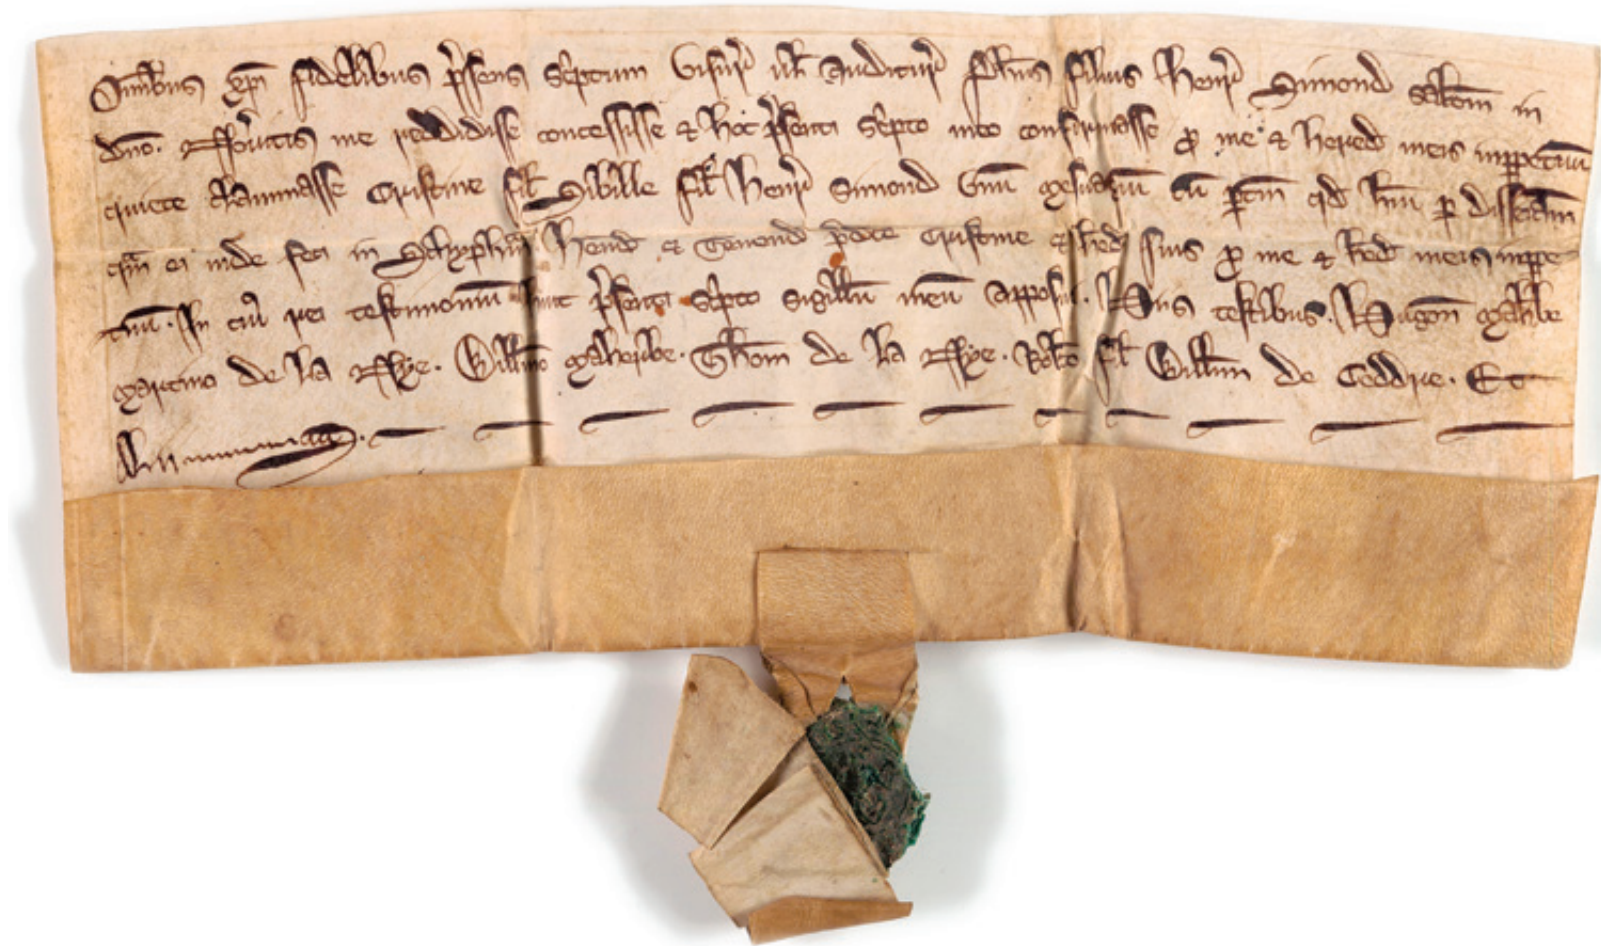 Omībus xp̄i fidelibus p̄sens sc̄ptum visur̄ vl̄ auditur̄ filius Henr̄ Simond salt̄m in
dn̄o. Nov̄itis me reddidisse concessisse & hoc p̄senti sc̄pto meo confirmasse p̄ me & hered̄ meis inppetuū
quiete clamasse Cristine fil̄ Sibille fil̄ Henr̄ Simond vnū mesuagiū cū p̄tin̄ qd̄ p̄ disseis̄
qm̄ ei inde feci in hend̄ & tenend̄ p̄dc̄e Cristine & h̄ed̄ suis p̄ me & h̄ed̄ meis inppe
tuū. In cui᷒ rei testimoniū huic p̄senti sc̄pto sigillū meū apposui. Hiis testibus. Hugon̄ Malh̄be
Martino de la Rye. Will̄mo Malherbe. Thom̄ de la Rye. Rob̄to fil̄ Will̄mi de Ceddre. Et
Aliis